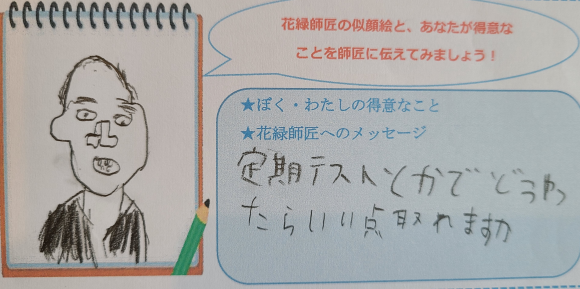 花緑師匠の似顔絵と、あなたが得意な
ことを師匠に伝えてみましょう！
★ぼく・わたしの得意なこと
★花緑師匠へのメッセージ
定期テストとかでどうやっ
たらいい点取れますか